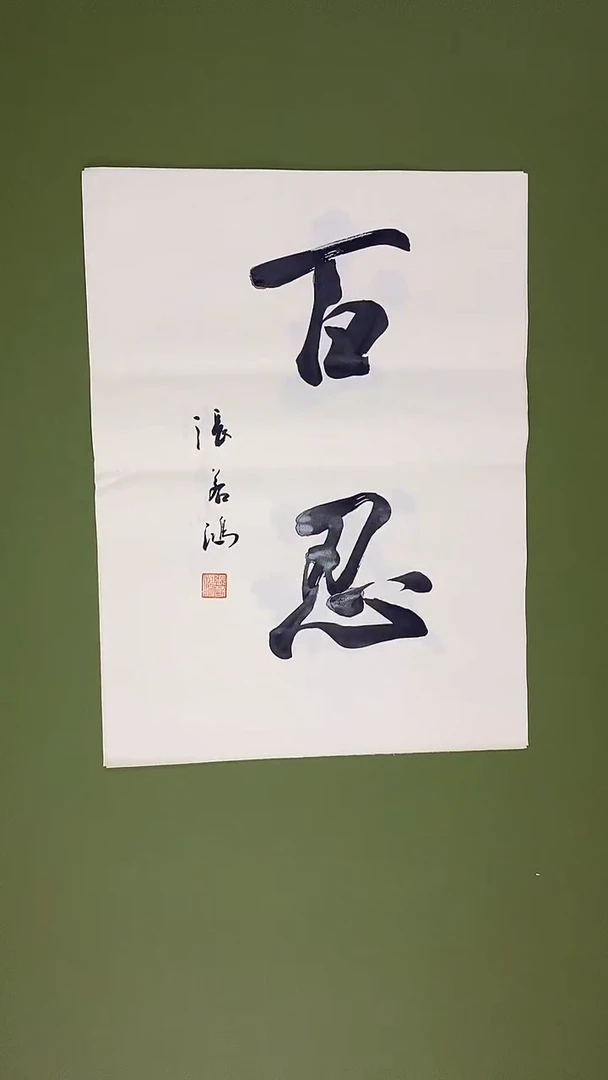 百忍
張若鴻